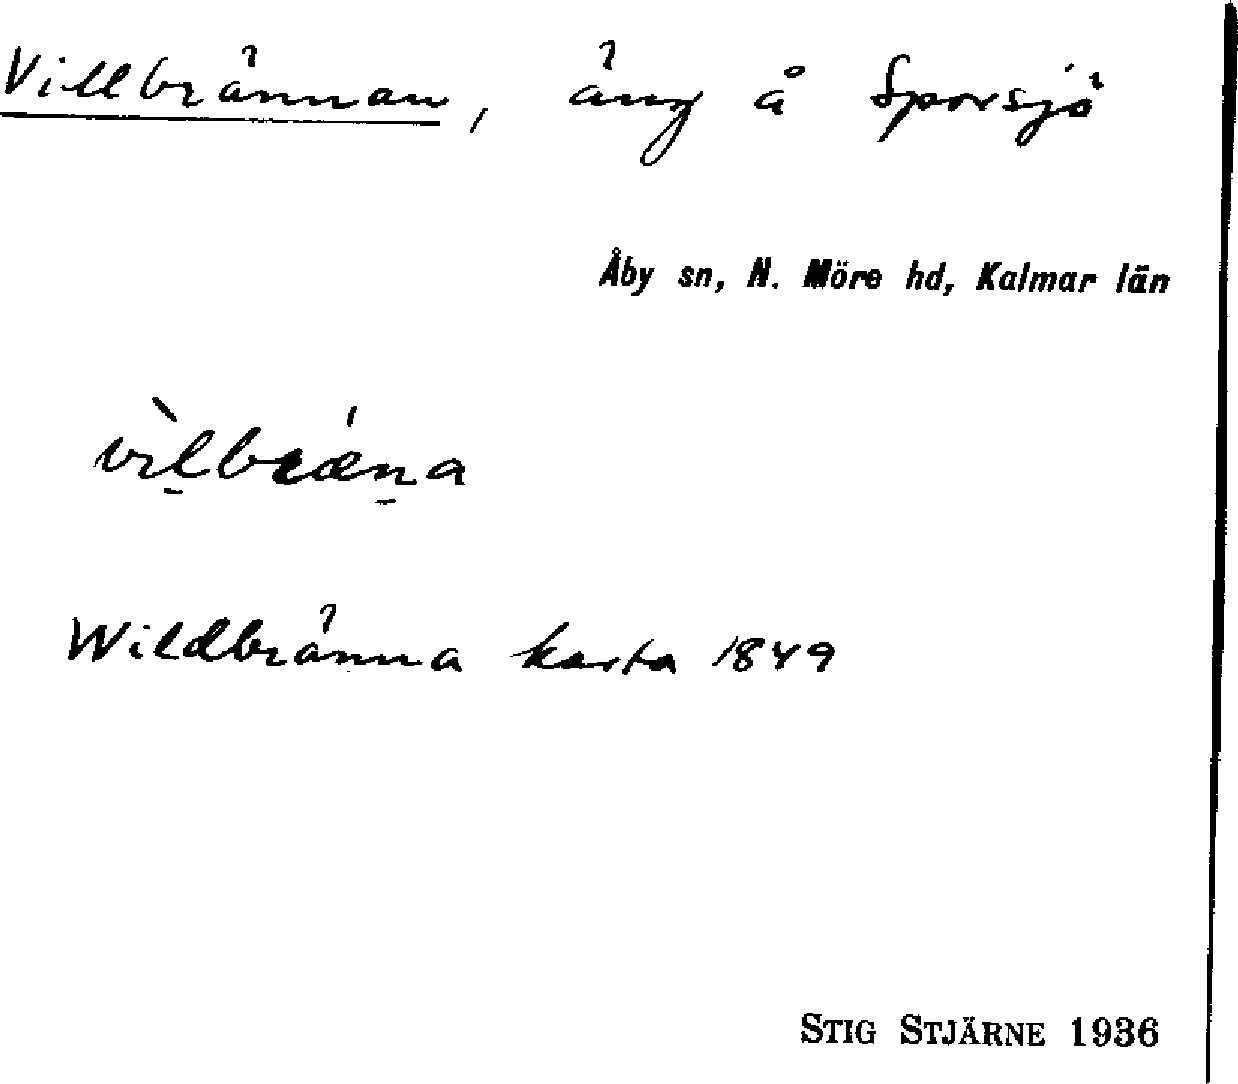 Villbrännan, äng å Sporsjö
Åby sn, N. Möre hd, Kalmar län
vìlbræ̍na
Wildbränna karta 1849
STIG STJÄRNE 1936